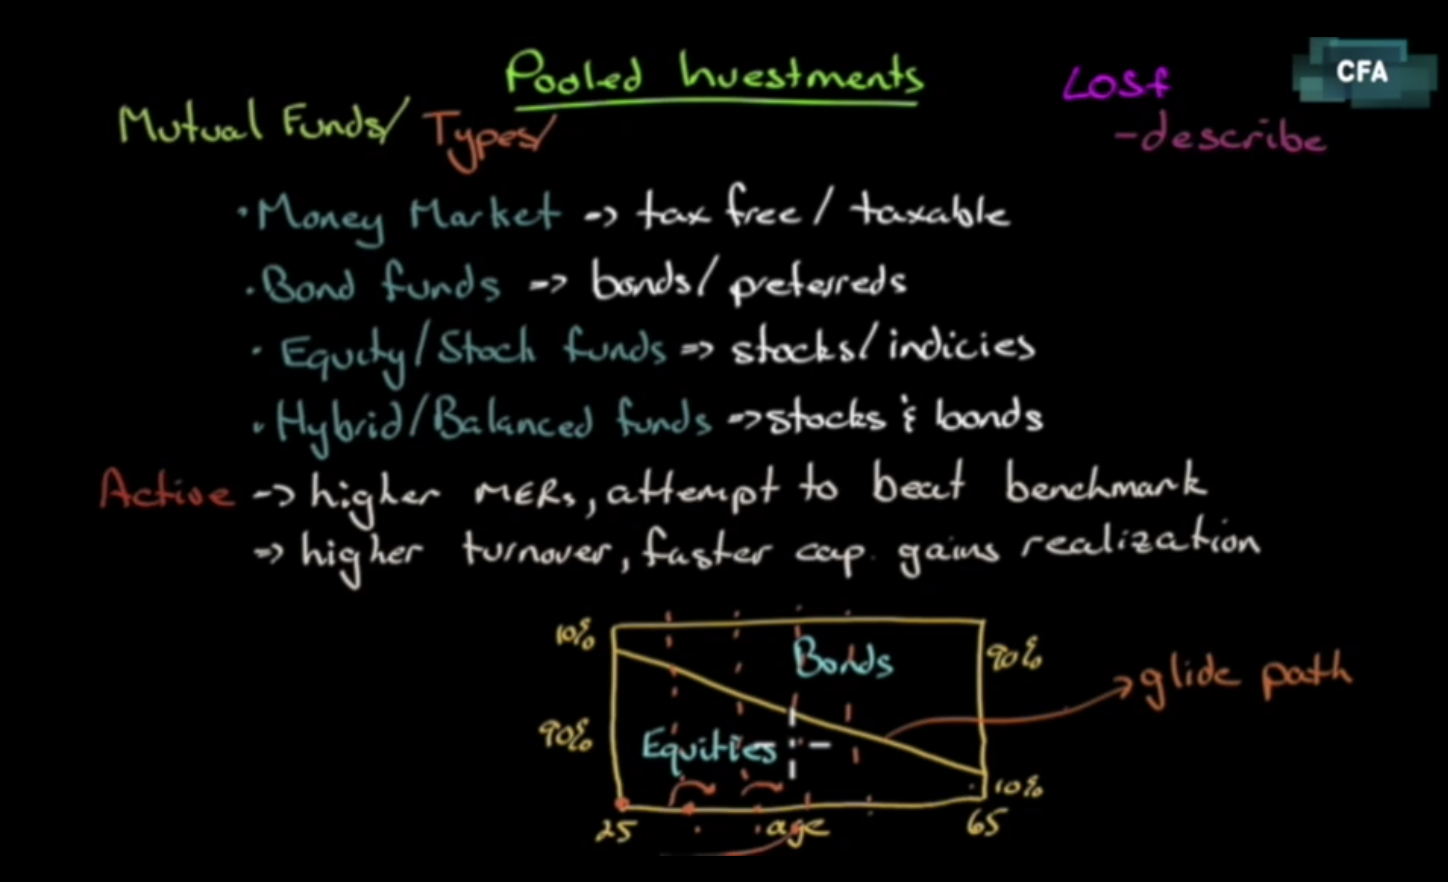 Pooled Investments
LOSf
CFA
-describe
Mutual Funds/ Types/
· Money Market -> tax free / taxable
· Bond funds => bonds/ preferreds
· Equity/Stock funds => stocks/ indicies
· Hybrid/Balanced funds => stocks & bonds
Active -> higher MERs, attempt to beat benchmark
=> higher turnover, faster cap. gains realization
10%
Bonds
90%
glide path
90%
Equities
10%
25
age
65